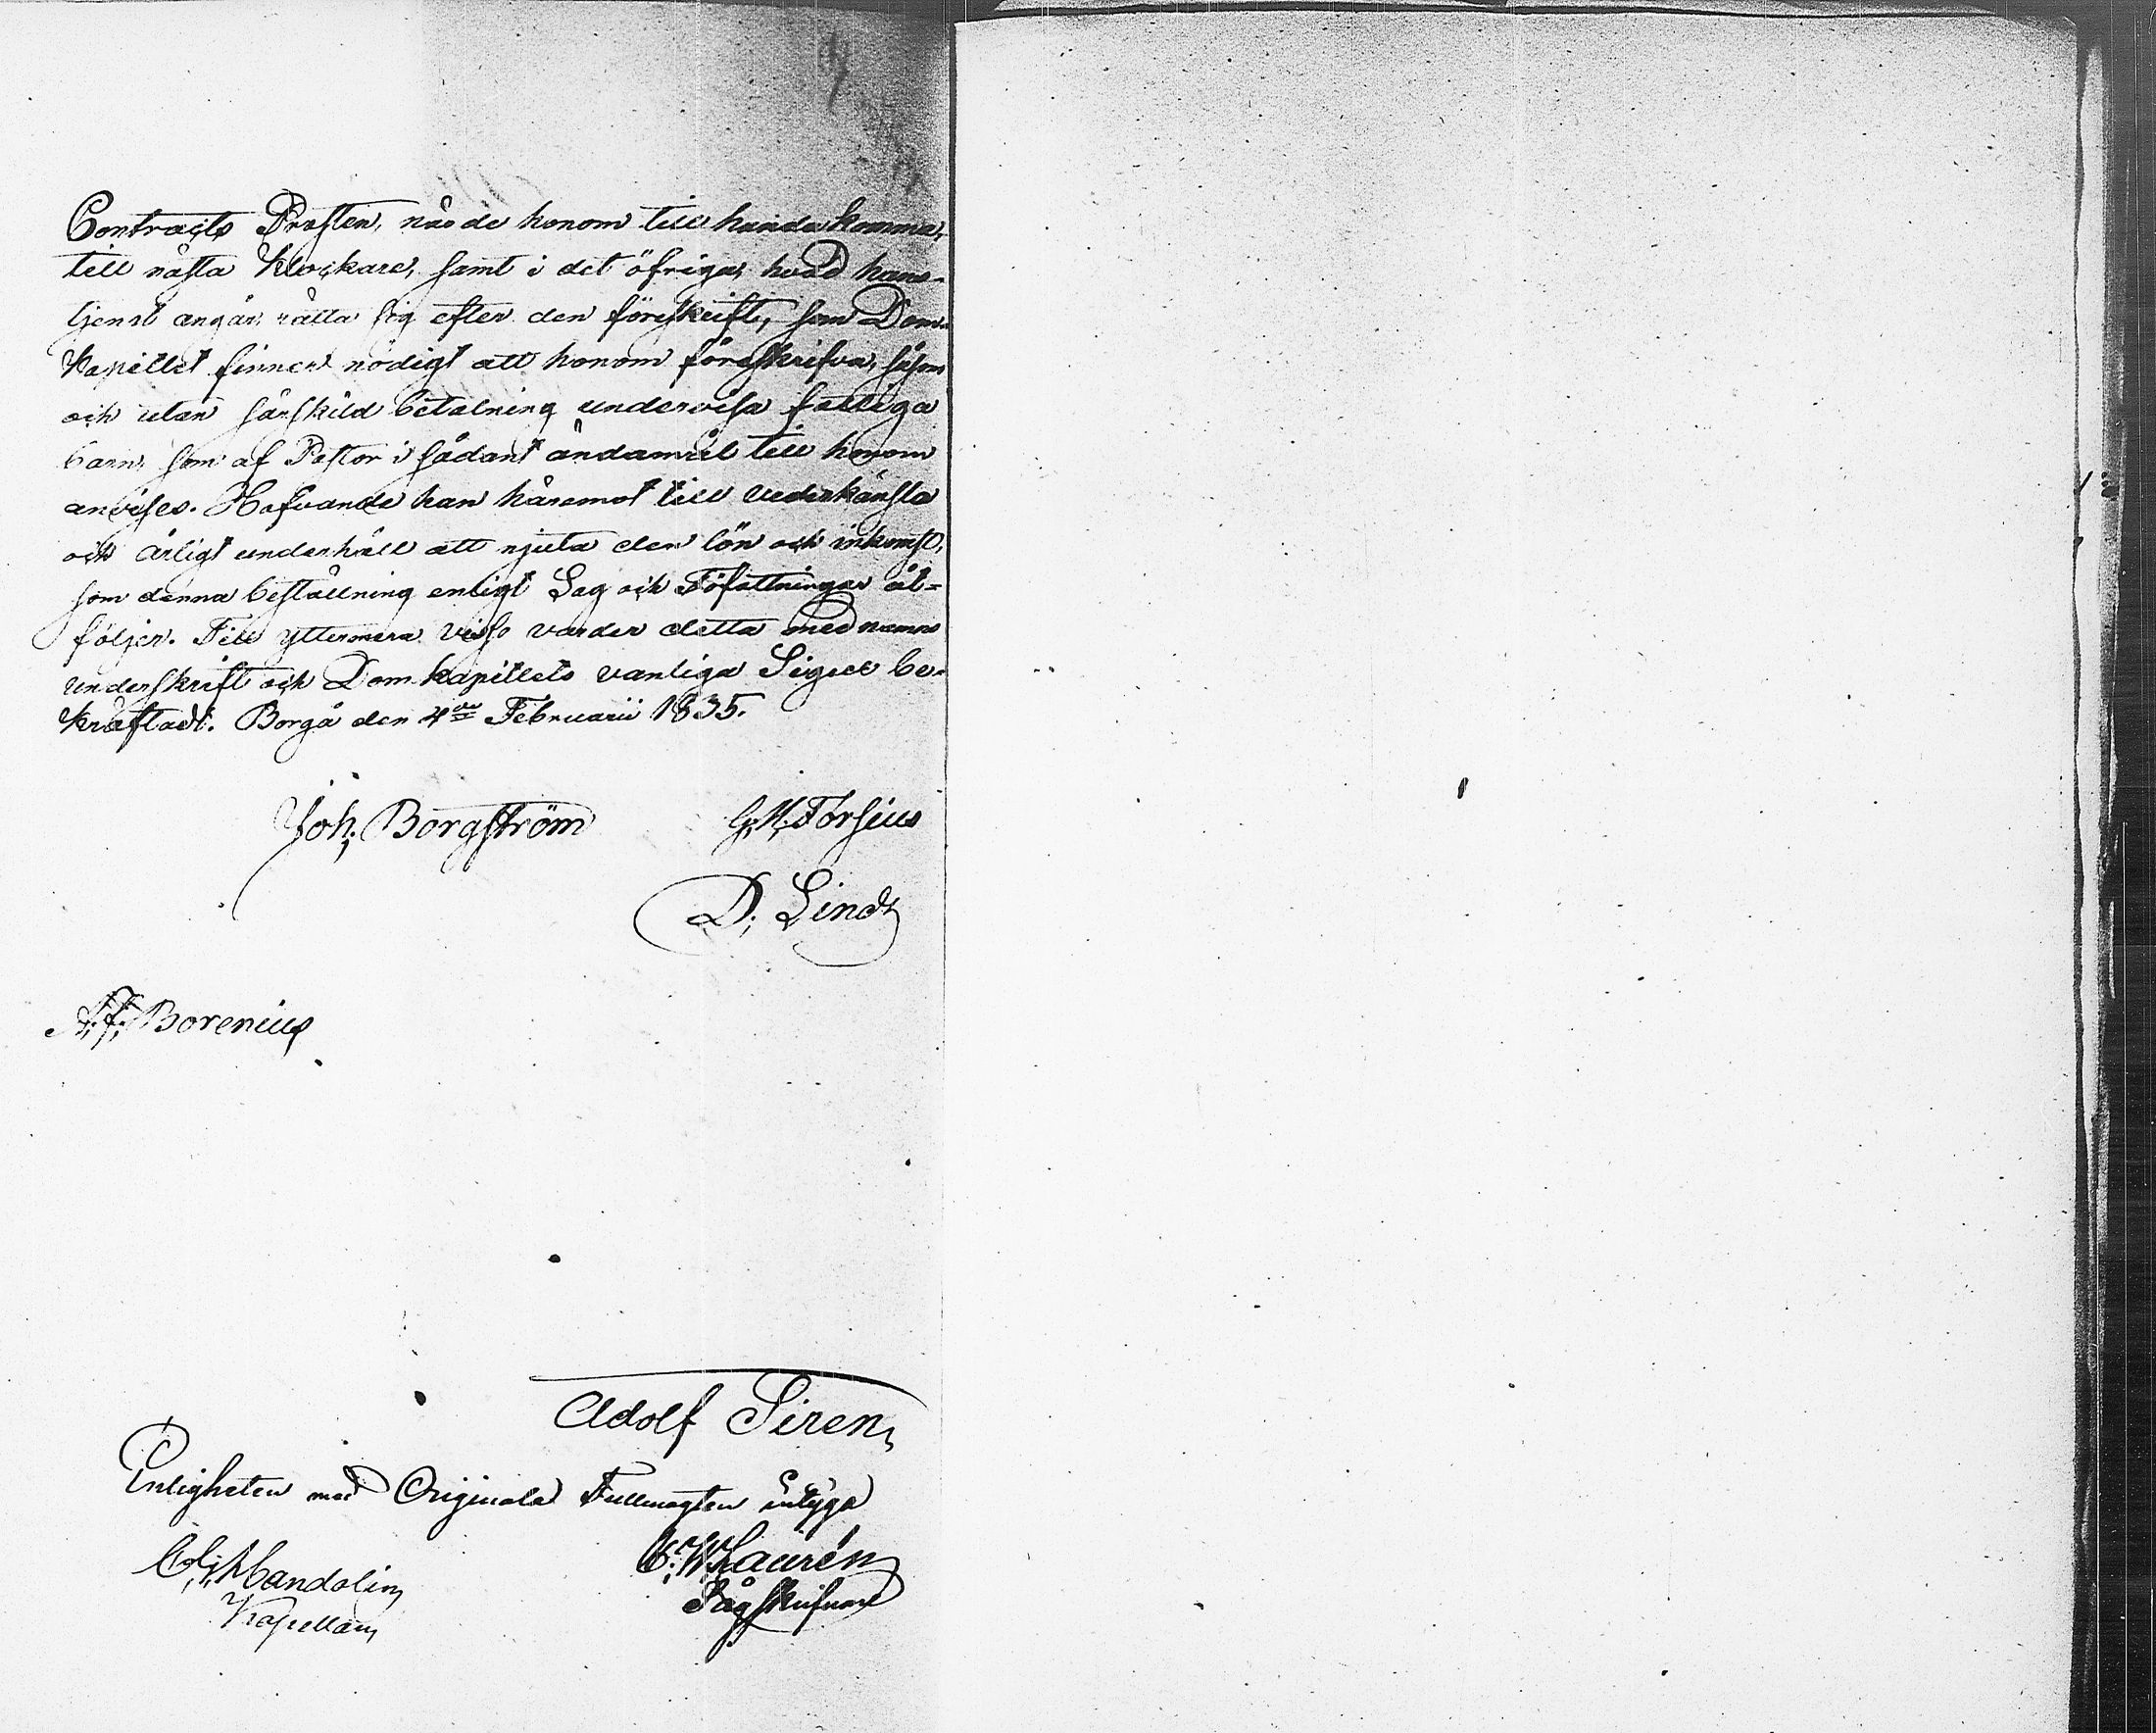 Contracts Prosten, når de honom till handa komma,
till nästa Klockare, samt i det öfriga, hvad hans
tjenst angår, rätta sig efter den föreskrift, som Dom-
kapitlet finner nödigt att honom föreskrifva, såsom
och utan särskild betalning undervisa fattiga
barn, som af Pastor i sådant ändamål till honom
anvises. Hafvande han häremot till vederkänsla
och årligt underhåll att njuta den lön och inkomst,
som denna beställning enligt Lag och Föfattningar åt=
följer. Till yttermera visso varder detta med namns
underskrift och Domkapitlets vanliga Sigill be-
kräftadt. Borgå den 4de Februarii 1835.
Joh. Borgström G. M. Forsius
D. Lind
Borenius
Adolf Siren
Enligheten med Originala Fullmagten intyga
Candolin C. W. Laurén
Kapellan